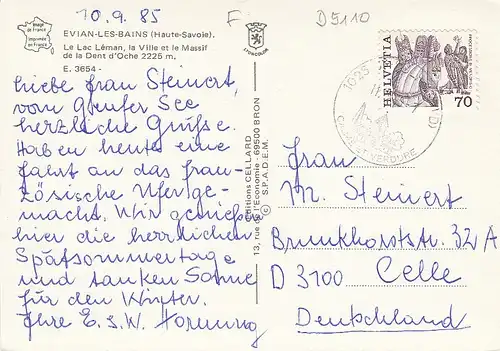 10.9.85
F
D5110
Image de France
Imprimée en France
EVIAN-LES-BAINS (Haute-Savoie).
Le Lac Léman, la Ville et le Massif
de la Dent d'Oche 2225 m.
E. 3654 -
LYONCOLOR
Liebe Frau Steinert,
vom Genfer See
herzliche Grüße.
Haben heute eine
Fahrt an das fran-
zösische Ufer ge-
macht. Wir genießen
hier die herrlichen
Spätsommertage
und tanken Sonne
für den Winter.
Ihre E. S. W. Hornung
Editions CELLARD
13, rue de l'Economie - 69500 BRON
© S.P.A.D.E.M.
HELVETIA
70
1025
Frau
M. Steinert
Brunkhorststr. 32A
D 3100 Celle
Deutschland